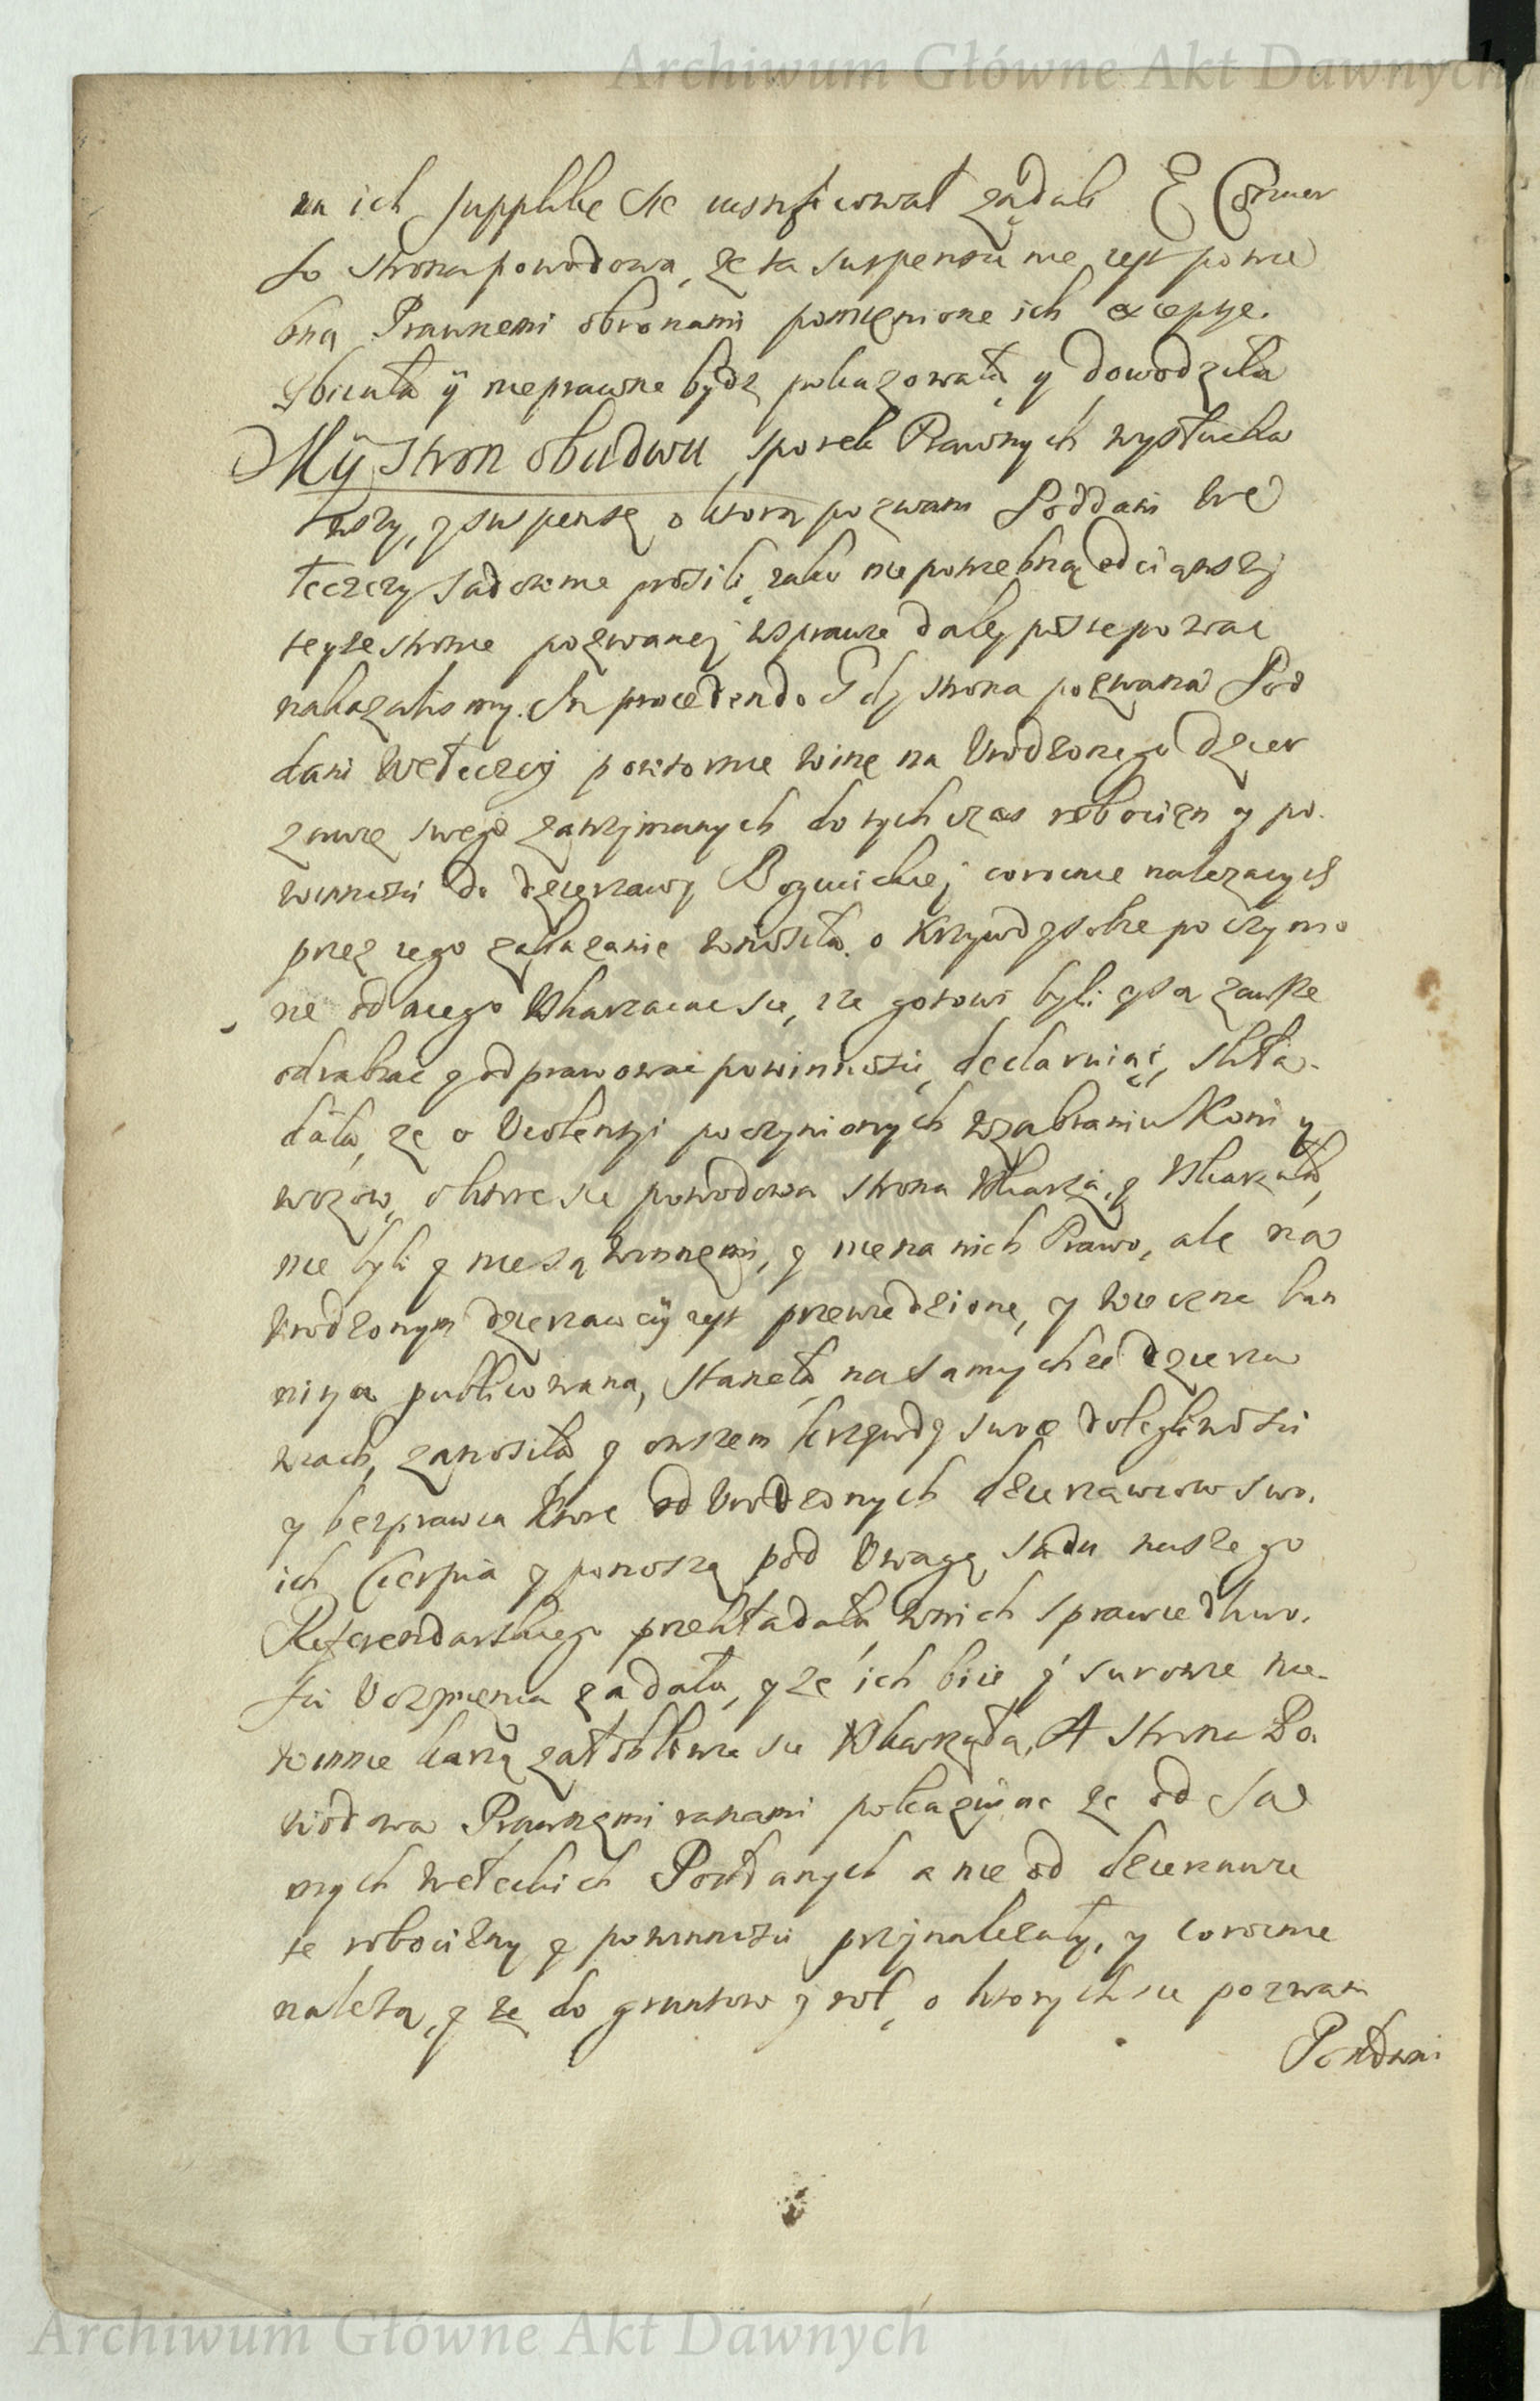 Archiwum Główne Akt Dawnych
na ich supplikę się żądali E Conver
so strona powodowa, że ta suspensa nie iest potrze
bna Prawnemi obronami pomienione ich excepye.
Zbiiała ÿ nieprawne bydz pokazowała y dowodziła
Mÿ stron obudwu sporek Prawnych wysłucha
wszy, suspensę o ktorą pozwani Poddani We
łeczczy Sądownie prosili, iako niepotrzebną odciąwszy
teyże stronie pozwaney w sprawie daley postępować
nakazalismy. In procedendo Gdy strona pozwana Pod
dani Wełeczcy powtornie winę na Urodzonego dzier
zawcę swego zatrzymanych dotychczas robocizn y po
winności do dzierzawy corocznie nalezących
przez iego zakazanie wnosiła o Krzywdy sobie poczynio
ne od niego Uskarzaiąc się, ze gotowi byli y są zawsze
odrabiać y odprawować powinności, declaruiąc, skła
dała, ze o Violentyi poczynionych w zabraniu Koni y
wozow, o ktore się powodowa strona Uskarza, y Uskarzała,
nie byli y nie są winnemi, y nie na nich Prawo, ale na
Urodzonym dzierzawcÿ iest przewiedzione, y wieczna ban
nicya publicowana, stanęła na samychze dzierza
wcach, zanosiła y owszem krzywdy swoie dolegliwości
y bezprawia Ktore od Urodzonych dzierzawcow swo
ich Cierpia y ponoszą pod Uwagę sądu naszego
Referendarskiego przekładała w nich sprawiedliwo
ści Uczynienia ządała, y że ich biie y surowie nie
winnie karzą załobliwie się Uskarzała, A strona Po
wodowa Prawnemi racyami pokazuiąc ze od sa
mych Wełeckich Poddanych a nie od dzierzawcy
te robocizny y powinności przynalezały, y corocznie
nalezą, y ze do gruntow y rol, o ktorych się pozwani
Poddani
Archiwum Główne Akt Dawnych